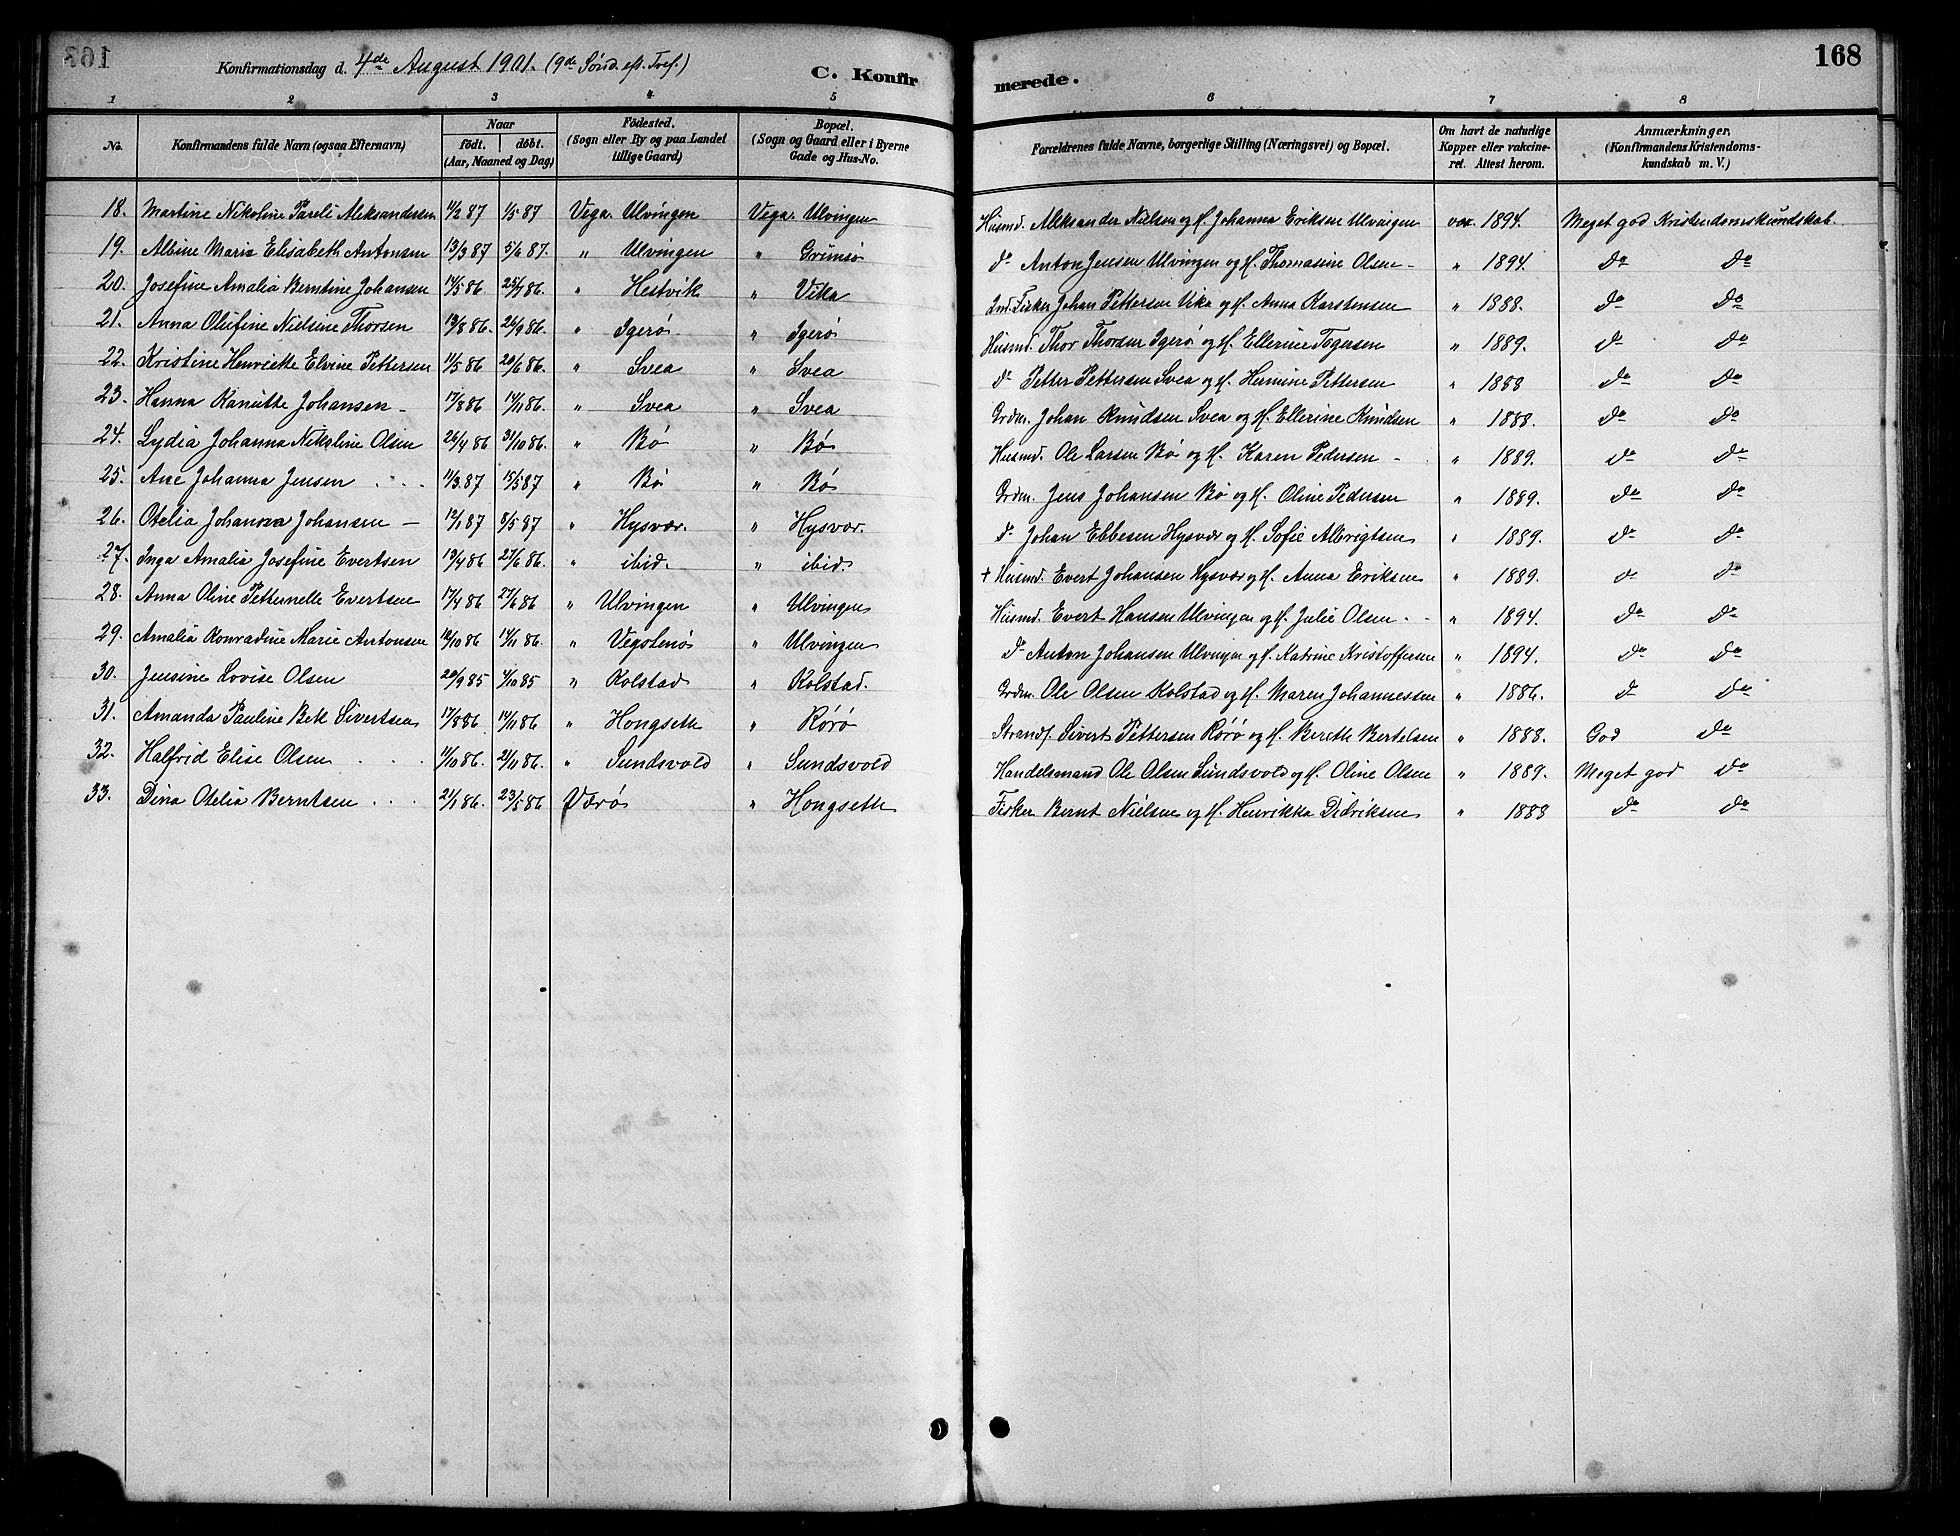 168
Konfirmationsdag d. 4de August 1901. (9de Sönd. eft. Tref.) C. Konfirmerede.
1 2 3 4 5 6 7 8
No. Konfirmandens fulde Navn (ogsaa Efternavn) Naar födt. döbt. (Aar, Maaned og Dag) Födested. (Sogn eller By og paa Landet tillige Gaard) Bopæl. (Sogn og Gaard eller i Byerne Gade og Hus-No. Forældrenes fulde Navne, borgerlige Stilling (Næringsvei) og Bopæl. Om havt de naturlige Kopper eller vakcineret. Attest herom. Anmærkninger. (Konfirmandens Kristendomskundskab m. V.)
18. Martine Nikoline Pareli Aleksandersen 11/2 87 1/5 87 Vega. Ulvingen Vega. Ulvingen Husmd. Aleksander Nielsen og H. Johanna Eriksen Ulvingen vac. 1894. Meget god Kristendomskundskab.
19. Albine Maria Elisabeth Antonsen 13/3 87 5/6 87. " Ulvingen " Grimsö do Anton Jensen Ulvingen og H. Thomasine Olsen - " 1894. do do
20. Josefine Amalia Berntine Johansen 14/5 86 25/7 86. " Hestvik " Vika Ind. Fisker Johan Pettersen Vika og H. Anna Karstensen " 1888. do do
21. Anna Olufine Nielsine Thorsen 13/8 86. 26/9 86. " Igerö " Igerö Husmd. Thor Thorsen Igerö og H. Ellerine Togersen " 1889. do do
22. Kristine Henriette Elvine Pettersen 11/5 86 20/6 86. " Svea " Svea do Petter Pettersen Svea og H. Hermine Pettersen " 1888 do do
23. Hanna Kanutte Johansen - 17/8 86 14/11 86. " Svea " Svea Grdm. Johan Knudsen Svea og H. Ellerine Knudsen " 1888. do do
24. Lydia Johanna Nikoline Olsen 26/4 86 31/10 86. " Bö " Bö Husmd. Ole Larsen Bö og H. Karen Pedersen - " 1889. do do
25. Ane Johanna Jensen 11/3 87 15/5 87 " Bö " Bö Grdm. Jens Johansen Bö og H. Oline Pedersen " 1889. do do
26. Otelia Johanna Johansen - 12/1 87 8/5 87 " Hysvær. " Hysvær. do Johan Ebbesen Hysvær og H. Sofie Albrigtsen " 1889. do do
27. Inga Amalia Josefine Evertsen 13/4 86 27/6 86. " ibid. " ibid. + Husmd. Evert Johansen Hysvær og H. Anna Eriksen " 1889. do do
28. Anna Oline Petternelle Evertsen 17/4 86 27/6 86 " Ulvingen " Ulvingen Husmd. Evert Hansen Ulvingen og H. Julie Olsen " 1894. do do
29. Amalia Konradine Marie Antonsen 12/10 86 14/11 86. " Vegstenö " Ulvingen do Anton Johansen Ulvingen og H. Katrine Kristoffersen " 1894. do do
30. Jensine Lovise Olsen 20/9 85 4/10 85 " Kolstad " Kolstad. Grdm. Ole Olsen Kolstad og H. Maren Johannessen " 1886. do do
31. Amanda Pauline Bek Sivertsen 17/8 86. 14/11 86 " Hongseth " Rörö Strands. Sivert Pettersen Rörö og H. Bereth Bertelsen " 1888. God do
32. Halfrid Elise Olsen 11/10 86. 21/11 86. " Sundsvold " Sundsvold Handelsmand Ole Olsen Sundsvold og H. Oline Olsen " 1889. Meget god do
33. Dina Otelia Berntsen 21/1 86. 23/5 86 Værö " Hongseth Fisker Bernt Nielsen og H. Henrikka Didriksen " 1888 do do